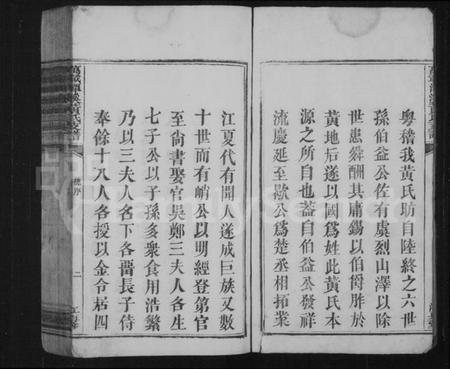 粵稽我黃氏昉自陸終之六世
孫伯益公佐有虞烈山澤以除
世患舜酬其庸錫以伯爵胙於
黃地后遂以國爲姓此黃氏本
源之所自也蓋自伯益公發祥
流慶延至歇公爲楚丞相拓業
江夏代有聞人遂成巨族又數
十世而有峭公以明經登第官
至尚書娶官吳鄭三夫人各生
七子公以子孫多衆食用浩繁
乃以三夫人名下各畱長子侍
奉餘十八人各授以金令居四
二